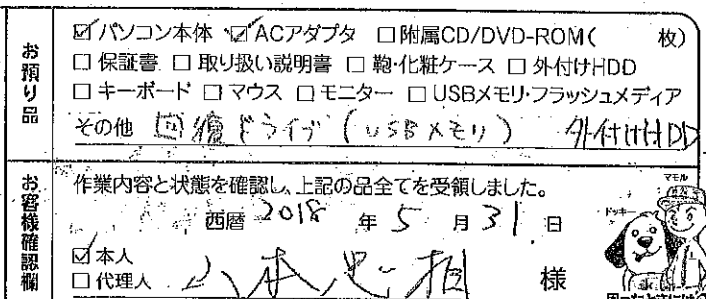 お預り品
☑ パソコン本体 ☑ ACアダプタ □ 附属CD/DVD-ROM( 枚)
□ 保証書 □ 取り扱い説明書 □ 鞄・化粧ケース □ 外付けHDD
□ キーボード □ マウス □ モニター □ USBメモリ・フラッシュメディア
その他 回復ドライブ (USBメモリ) 外付けHDD
お客様確認欄
作業内容と状態を確認し、上記の品全てを受領しました。
西暦 2018 年 5 月 31 日
☑ 本人
□ 代理人 様
マモル
ドッキー